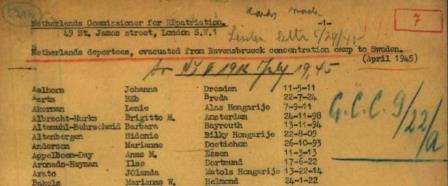 Cards made
Netherlands Commissioner for REpatriation. -1- 7
49 St. James street, London S.W.1
Netherlands deportees, evacuated from Ravensbrueck concentration camp to Sweden.
(April 1945)
Aalborn Johanna Dresden 11-9-11
Aarts REb Breda 22-7-24
Akerman Lenie Alas Hongarije 7-9-11
Albrecht-Hurks Brigitto M. Amsterdam 24-11-98
Altemuhl-Behrscheid Barbara Bayreuth 13-11-94
Altenbergen Sidonia Bilky Hongarije 22-8-09
Anderson Marianne Doetichem 26-10-93
Appelboom-Day Anna M. Essen 11-3-13
Aronads-Hayman Ilse Dortmund 17-6-22
Arato Jölanda Matols Hongarije 13-2-14
Bakels Marianne W. Helmond 24-1-22
G.C.C. 9/22/a